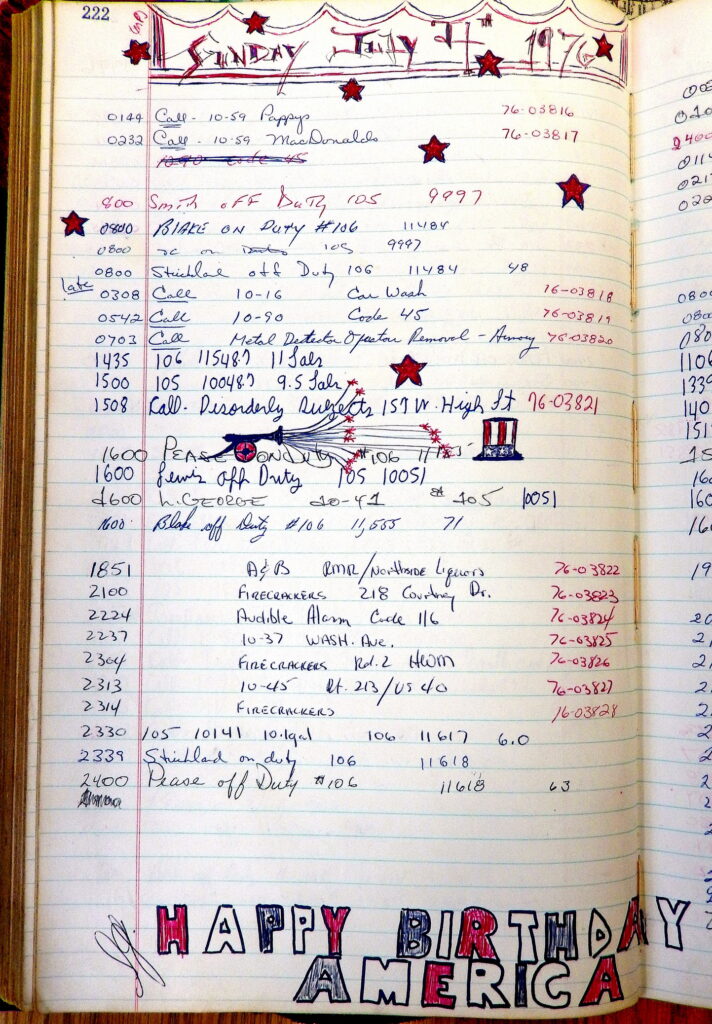 222
SUNDAY JULY 4th 1976
0144 Call - 10-59 Pappys 76-03816
0232 Call - 10-59 MacDonalds 76-03817
10-90 Code 45
800 Smith off Duty 105 9997
0800 BLAKE ON DUTY #106 11484
0800 on Duty 105 9997
0800 Strickland off Duty 106 11484 48
late
0308 Call 10-16 Car Wash 76-03818
0542 Call 10-90 Code 45 76-03819
0703 Call Metal Detector Operator Removal - Armory 76-03820
1435 106 11548.7 11 Gals
1500 105 10048.7 9.5 Gals
1508 Call - Disorderly Subjects 157 W. High St 76-03821
1600 PEASE ON DUTY #106
1600 Lewis off Duty 105 10051
1600 L. GEORGE 10-41 # 105 10051
1600 Blake off Duty #106 11,555 71
1851 A&B RMR/Northside Liquors 76-03822
2100 FIRECRACKERS 218 Courtney Dr. 76-03823
2224 Audible Alarm Code 116 76-03824
2237 10-37 WASH. Ave. 76-03825
2304 FIRECRACKERS Rd. 2 HWM 76-03826
2313 10-45 Rt. 213/US 40 76-03827
2314 FIRECRACKERS 76-03828
2330 105 10141 10.1gal 106 11617 6.0
2339 Strickland on duty 106 11618
2400 Pease off Duty #106 11618 63
HAPPY BIRTHDAY
AMERICA